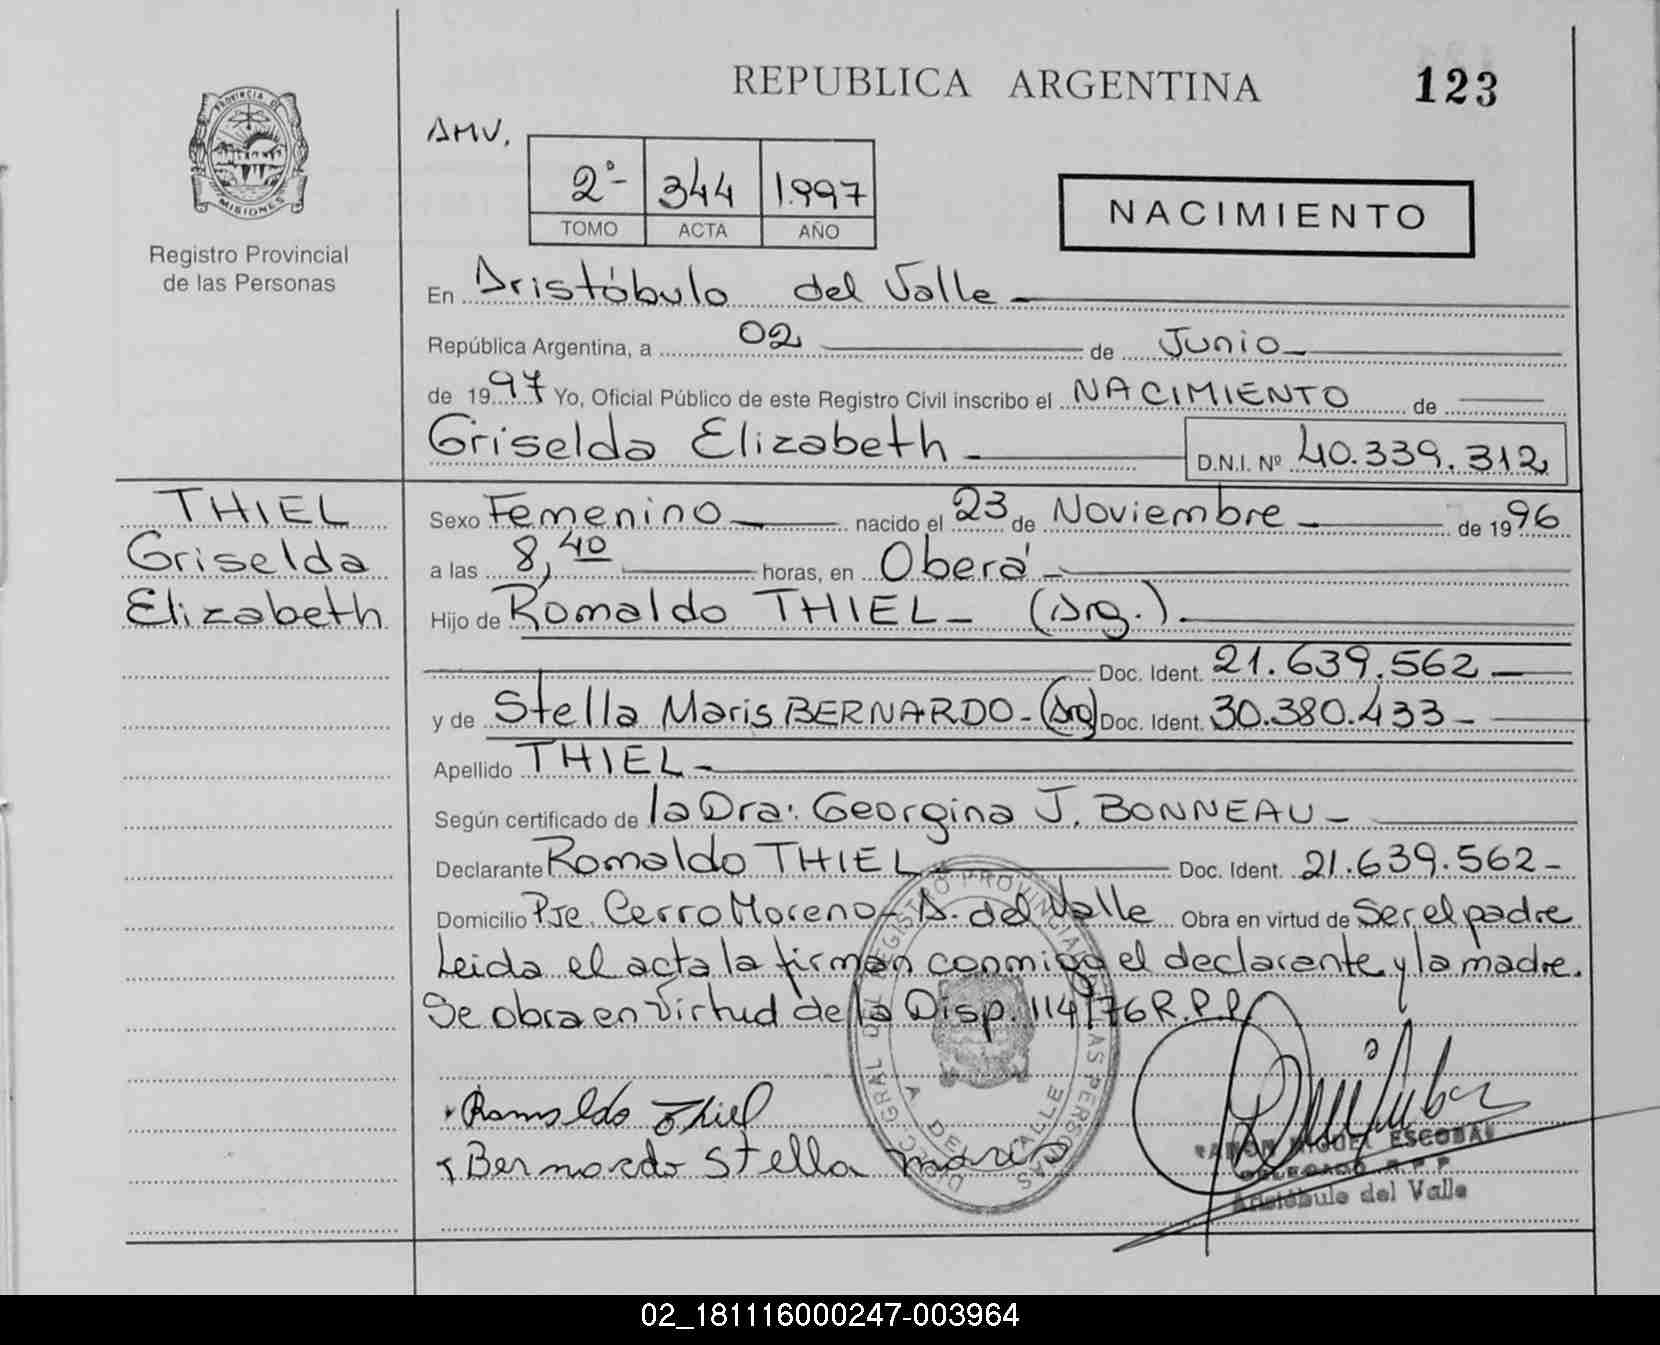 REPUBLICA ARGENTINA 123
PROVINCIA DE
MISIONES
Registro Provincial
de las Personas
AMV.
2º- 344 1.997
TOMO ACTA AÑO
NACIMIENTO
En Aristóbulo del Valle
República Argentina, a 02 de Junio
de 1997 Yo, Oficial Público de este Registro Civil inscribo el NACIMIENTO de
Griselda Elizabeth D.N.I. Nº 40.339.312
THIEL
Griselda
Elizabeth
Sexo Femenino nacido el 23 de Noviembre de 1996
a las 8,40 horas, en Oberá
Hijo de Romaldo THIEL- (Arg.)
Doc. Ident. 21.639.562
y de Stella Maris BERNARDO- (Arg) Doc. Ident. 30.380.433-
Apellido THIEL-
Según certificado de la Dra: Georgina J. BONNEAU-
Declarante Romaldo THIEL Doc. Ident. 21.639.562-
Domicilio Pje. Cerro Moreno- A. del Valle Obra en virtud de Ser el padre
Leida el acta la firman conmigo el declarante y la madre.
Se obra en Virtud de la Disp. 114/76 R.P.P.
Romaldo Thiel
Bernardo Stella Maris
DIRECC. GRAL DEL REGISTRO PROVINCIAL DE LAS PERSONAS
A. DEL VALLE
RAMON MIGUEL ESCOBAR
DELEGADO R.P.P.
Aristóbulo del Valle
02_181116000247-003964